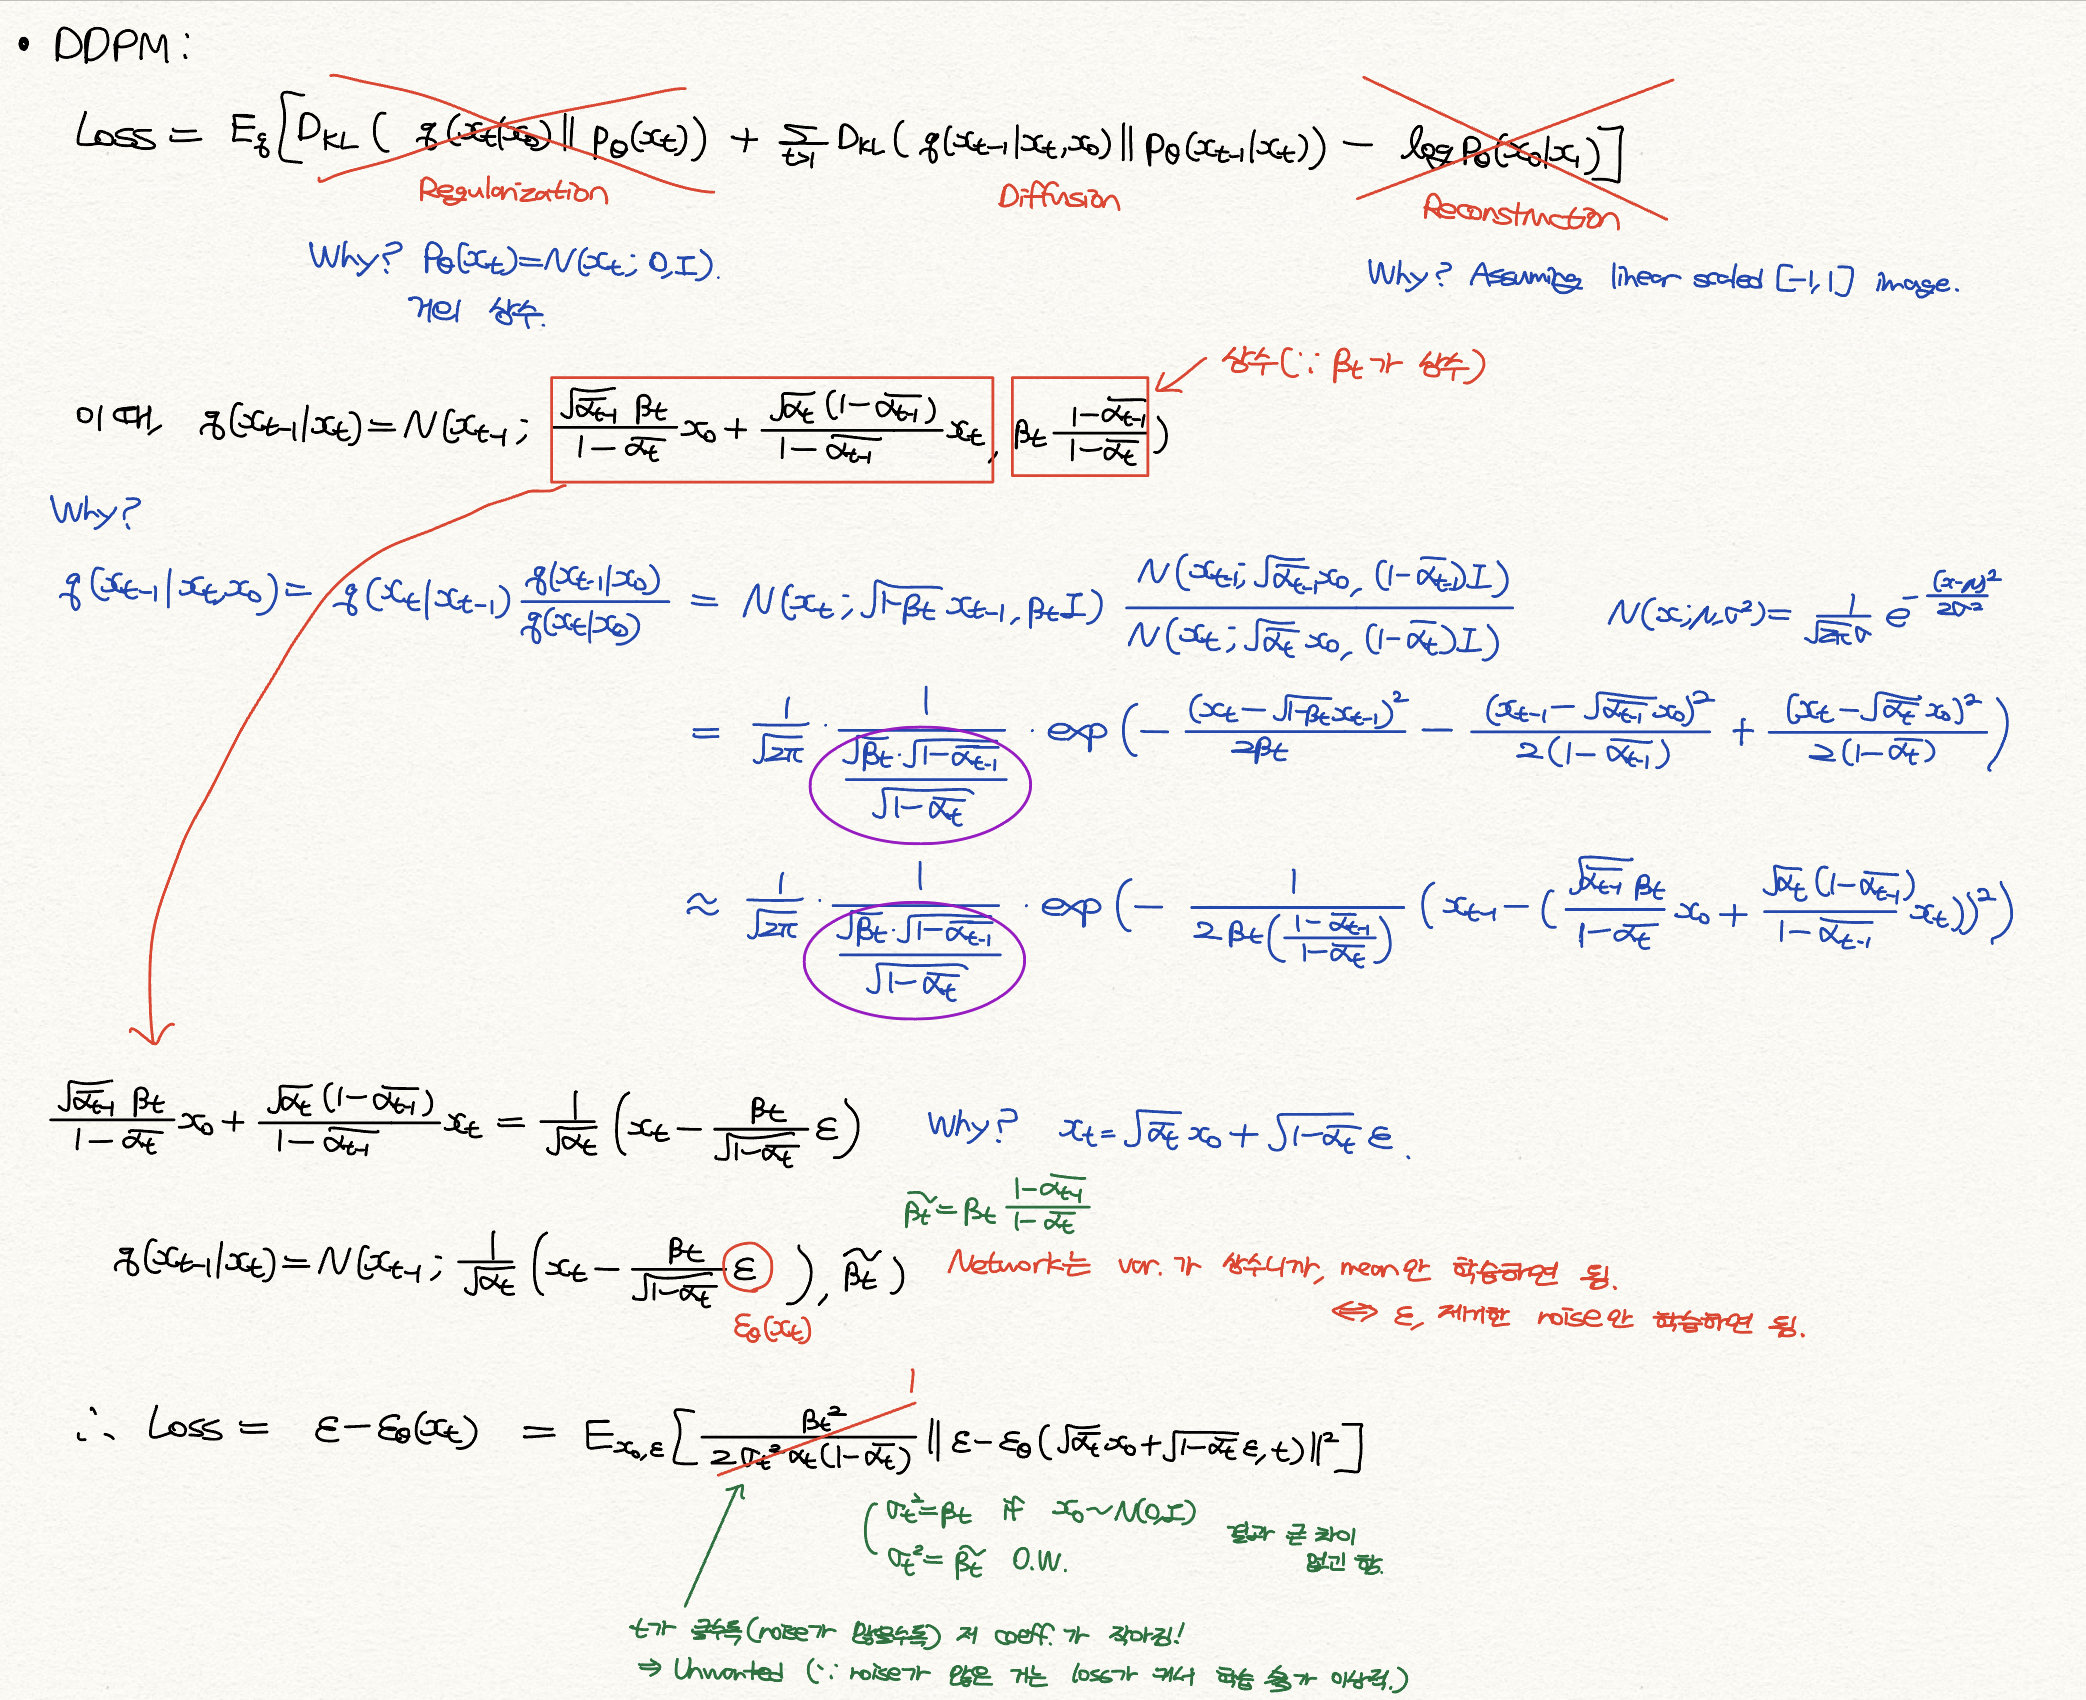 • DDPM:
Loss = E_q [ D_KL ( q(x_t|x_0) || p_θ(x_t) ) + Σ_{t>1} D_KL ( q(x_{t-1}|x_t,x_0) || p_θ(x_{t-1}|x_t) ) − log p_θ(x_0|x_1) ]
Regularization Diffusion Reconstruction
Why? P_θ(x_t)=N(x_t; 0,I).
거의 상수.
Why? Assuming linear scaled [-1,1] image.
상수(∵ β_t가 상수)
이때, q(x_{t-1}|x_t) = N(x_{t-1}; \frac{\sqrt{\bar{α}_{t-1}} β_t}{1-\bar{α}_t} x_0 + \frac{\sqrt{α_t}(1-\bar{α}_{t-1})}{1-\bar{α}_{t-1}} x_t, β_t \frac{1-\bar{α}_{t-1}}{1-\bar{α}_t})
Why?
q(x_{t-1}|x_t,x_0) = q(x_t|x_{t-1}) \frac{q(x_{t-1}|x_0)}{q(x_t|x_0)} = N(x_t; \sqrt{1-β_t} x_{t-1}, β_t I) \frac{N(x_{t-1}; \sqrt{\bar{α}_{t-1}} x_0, (1-\bar{α}_{t-1})I)}{N(x_t; \sqrt{\bar{α}_t} x_0, (1-\bar{α}_t)I)} N(x;μ,σ²) = \frac{1}{\sqrt{2π}σ} e^{-\frac{(x-μ)^2}{2σ^2}}
= \frac{1}{\sqrt{2π}} · \frac{1}{\frac{\sqrt{β_t}·\sqrt{1-\bar{α}_{t-1}}}{\sqrt{1-\bar{α}_t}}} · exp(− \frac{(x_t-\sqrt{1-β_t}x_{t-1})^2}{2β_t} − \frac{(x_{t-1}-\sqrt{\bar{α}_{t-1}}x_0)^2}{2(1-\bar{α}_{t-1})} + \frac{(x_t-\sqrt{\bar{α}_t}x_0)^2}{2(1-\bar{α}_t)})
≈ \frac{1}{\sqrt{2π}} · \frac{1}{\frac{\sqrt{β_t}·\sqrt{1-\bar{α}_{t-1}}}{\sqrt{1-\bar{α}_t}}} · exp(− \frac{1}{2β_t(\frac{1-\bar{α}_{t-1}}{1-\bar{α}_t})} (x_{t-1} − (\frac{\sqrt{\bar{α}_{t-1}} β_t}{1-\bar{α}_t} x_0 + \frac{\sqrt{α_t}(1-\bar{α}_{t-1})}{1-\bar{α}_{t-1}} x_t))^2)
\frac{\sqrt{\bar{α}_{t-1}} β_t}{1-\bar{α}_t} x_0 + \frac{\sqrt{α_t}(1-\bar{α}_{t-1})}{1-\bar{α}_{t-1}} x_t = \frac{1}{\sqrt{α_t}} (x_t − \frac{β_t}{\sqrt{1-\bar{α}_t}} ε) Why? x_t = \sqrt{\bar{α}_t} x_0 + \sqrt{1-\bar{α}_t} ε.
\tilde{β}_t = β_t \frac{1-\bar{α}_{t-1}}{1-\bar{α}_t}
q(x_{t-1}|x_t) = N(x_{t-1}; \frac{1}{\sqrt{α_t}} (x_t − \frac{β_t}{\sqrt{1-\bar{α}_t}} ε), \tilde{β}_t) Network는 var.가 상수니까, mean만 학습하면 됨.
ε_θ(x_t) ⟺ ε, 제거한 noise만 학습하면 됨.
1
∴ Loss = ε−ε_θ(x_t) = E_{x_0,ε} [ \frac{β_t^2}{2σ_t^2 α_t(1-\bar{α}_t)} || ε−ε_θ(\sqrt{\bar{α}_t}x_0+\sqrt{1-\bar{α}_t}ε, t) ||^2 ]
σ_t^2=β_t if x_0~N(0,I) 결과 큰 차이
σ_t^2=\tilde{β}_t O.W. 없긴 함.
t가 클수록(noise가 많을수록) 저 coeff.가 작아짐!
⇒ Unwanted (∵ noise가 많은 거는 loss가 커서 학습 이상적.)